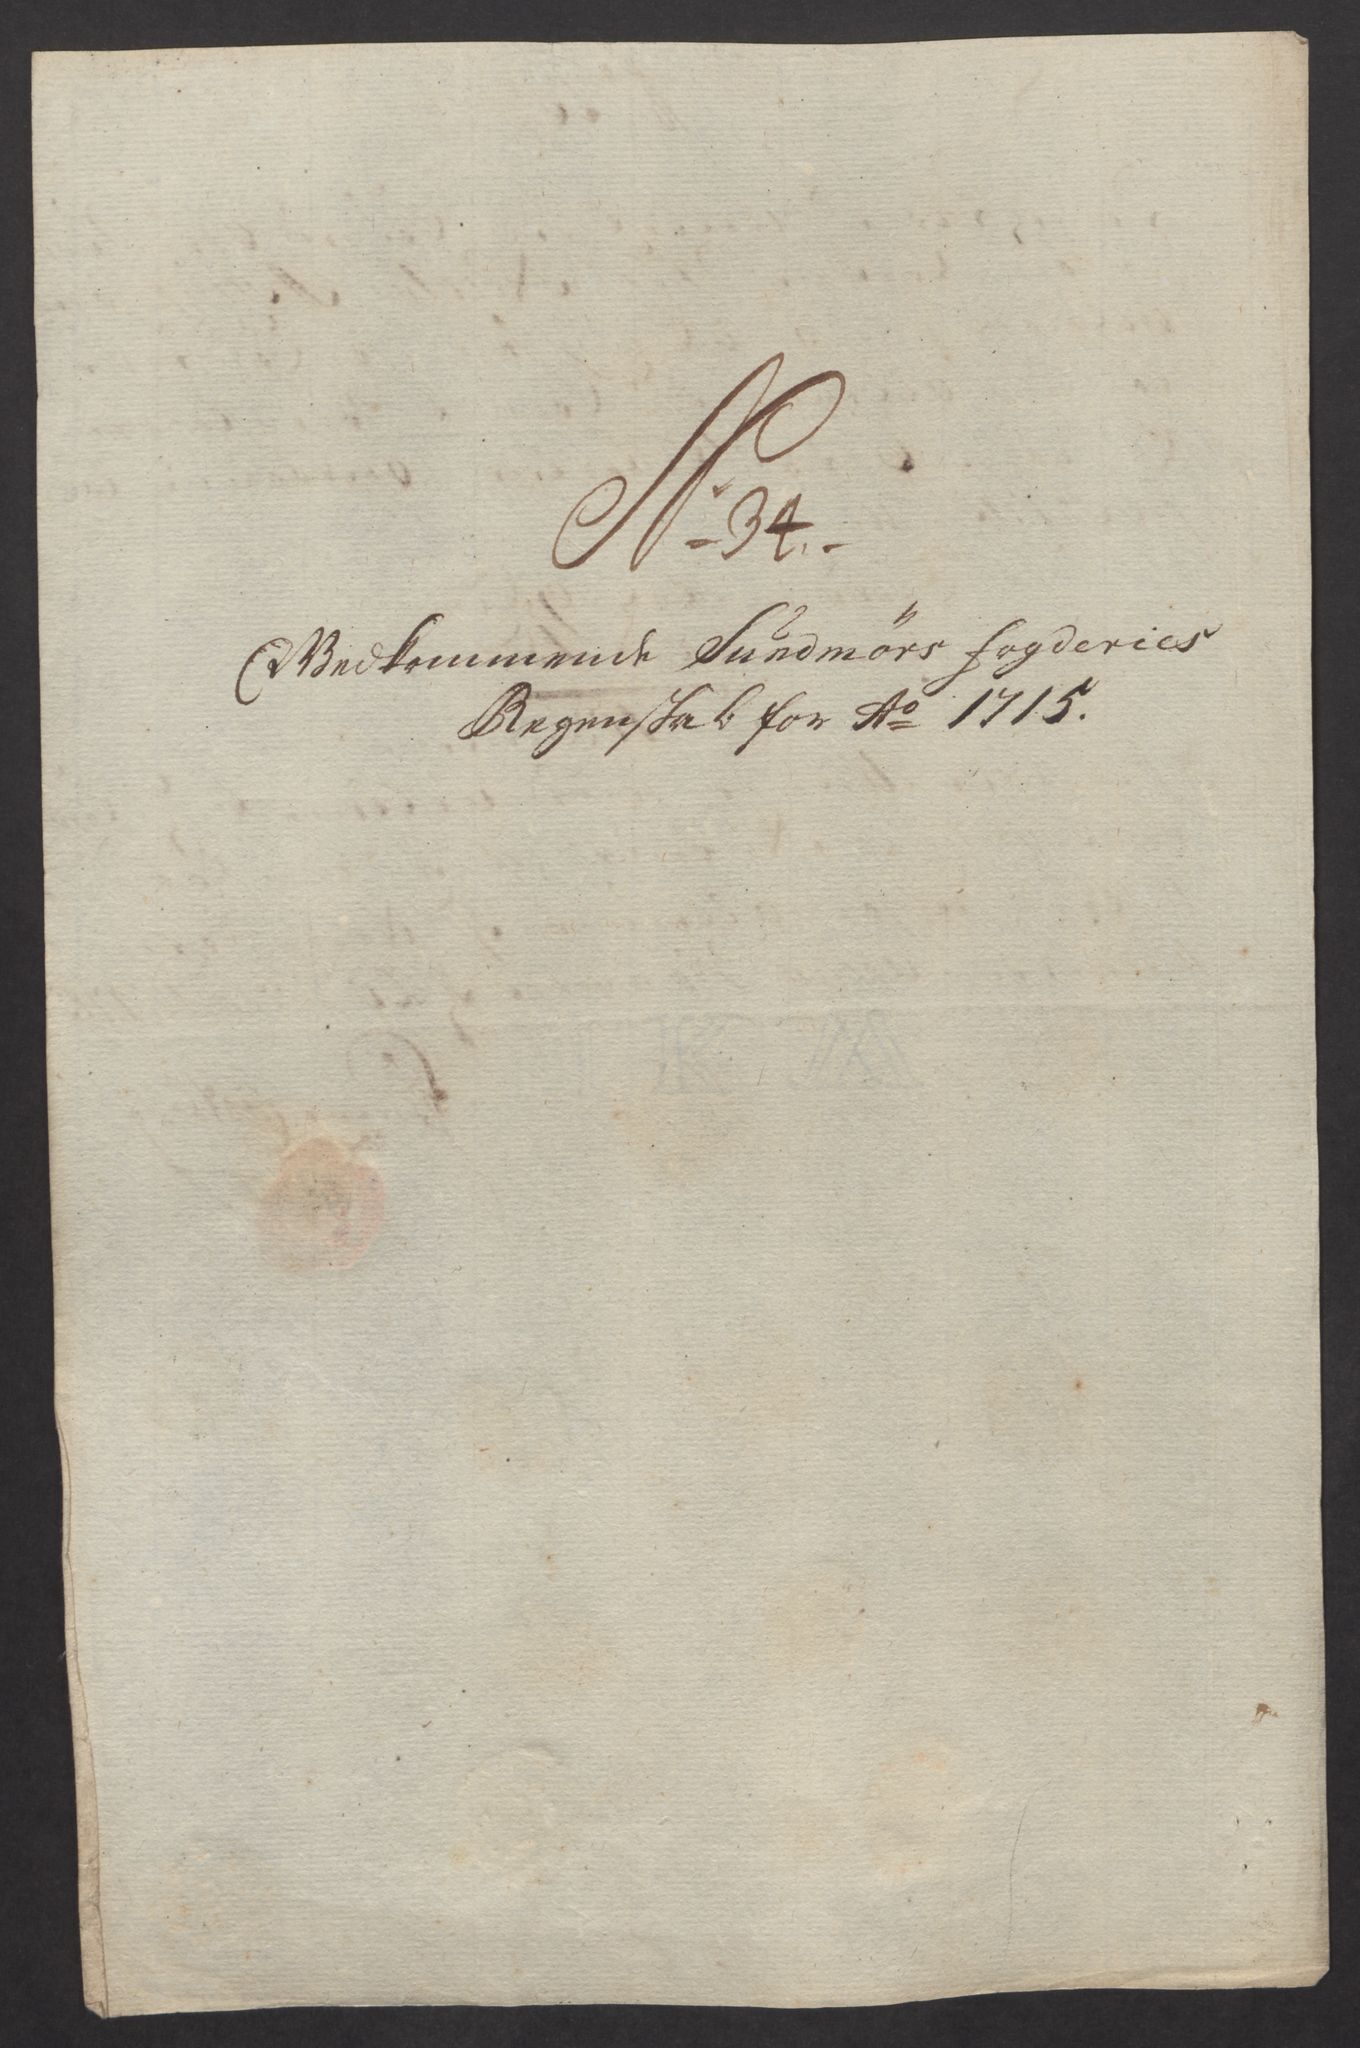 N: -34.-
Vedkommende Sundmörs fogderies
Regenskab for Ao 1715.